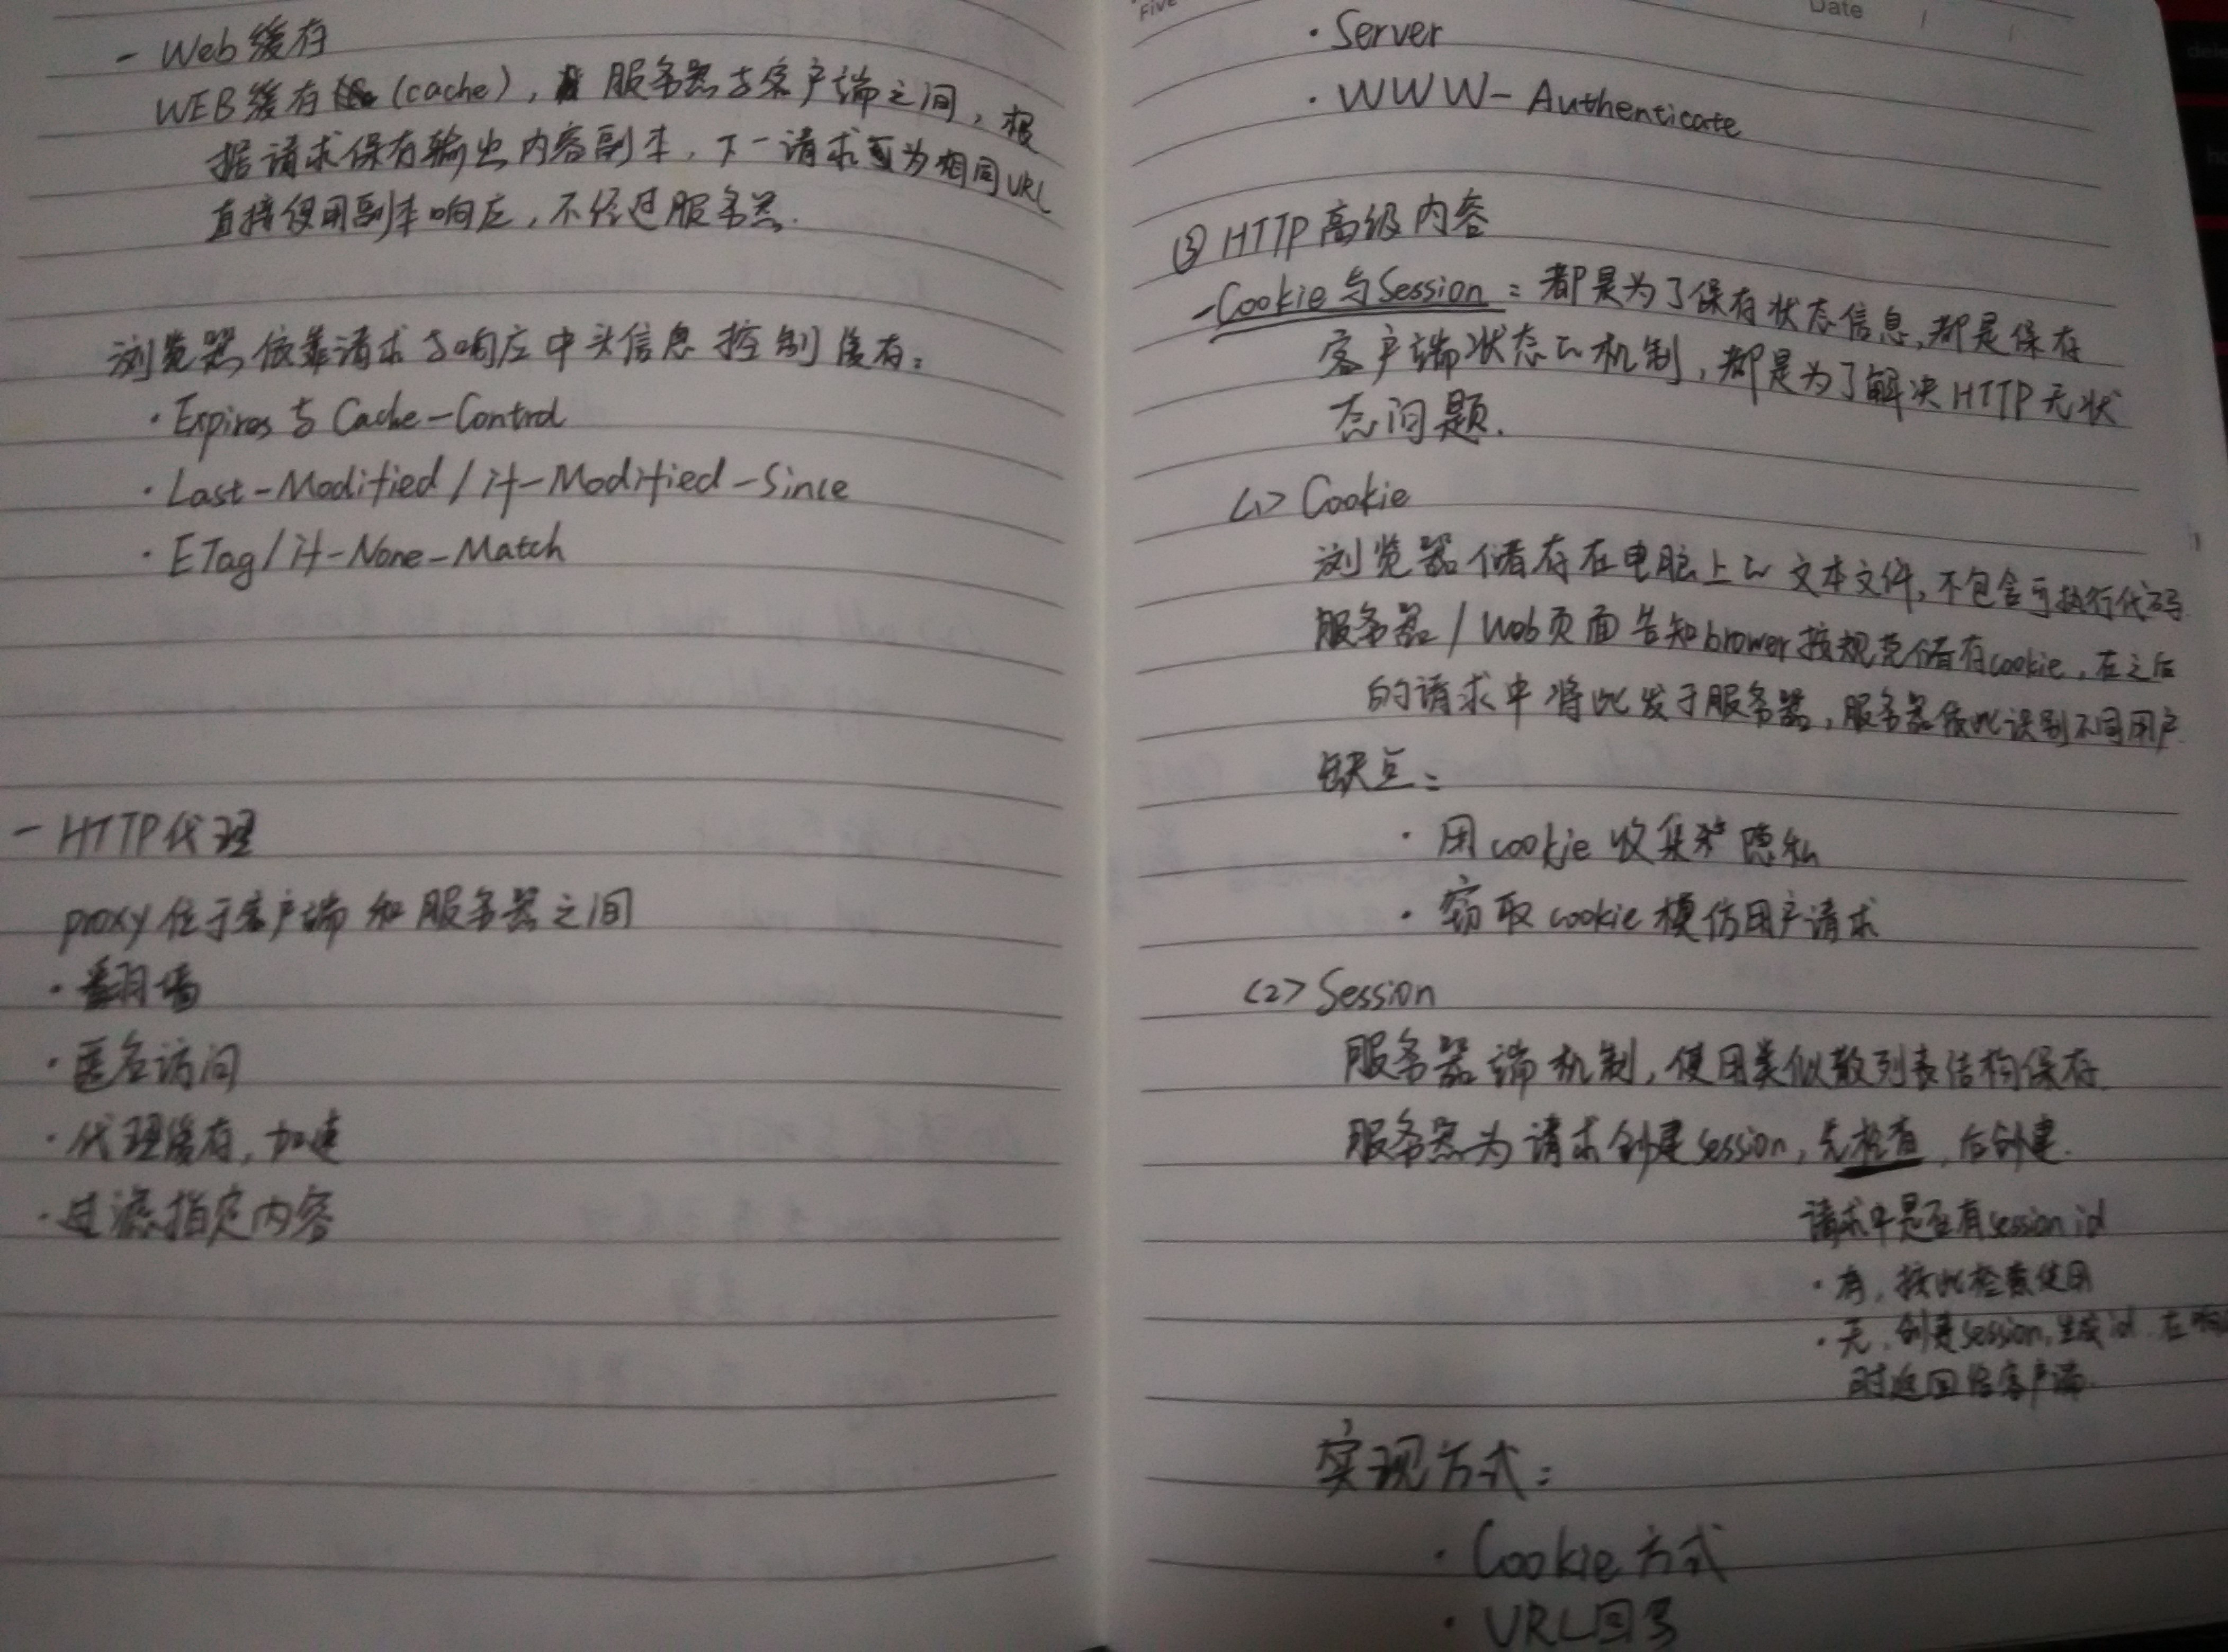 - Web缓存
WEB缓存(cache), 服务器与客户端之间, 根
据请求保存输出内容副本, 下一请求可为相同URL
直接使用副本响应, 不经过服务器.
浏览器依靠请求与响应中头信息控制缓存:
· Expires与Cache-Control
· Last-Modified / if-Modified-Since
· ETag / if-None-Match
- HTTP代理
proxy位于客户端和服务器之间
· 翻墙
· 匿名访问
· 代理缓存, 加速
· 过滤指定内容
Date
· Server
· WWW-Authenticate
③ HTTP高级内容
- Cookie与Session: 都是为了保存状态信息, 都是保存
客户端状态的机制, 都是为了解决HTTP无状
态问题.
<1> Cookie
浏览器储存在电脑上的文本文件, 不包含可执行代码
服务器 / Web页面告知brower按规范储存cookie, 在之后
的请求中将此发于服务器, 服务器依此识别不同用户.
缺点:
· 用cookie收集隐私
· 窃取cookie模仿用户请求
<2> Session
服务器端机制, 使用类似散列表结构保存.
服务器为请求创建session, 先检查, 后创建.
请求中是否有session id
· 有, 按此检索使用
· 无, 创建session, 生成id, 在响
时返回给客户端.
实现方式:
· Cookie方式
· URL回写